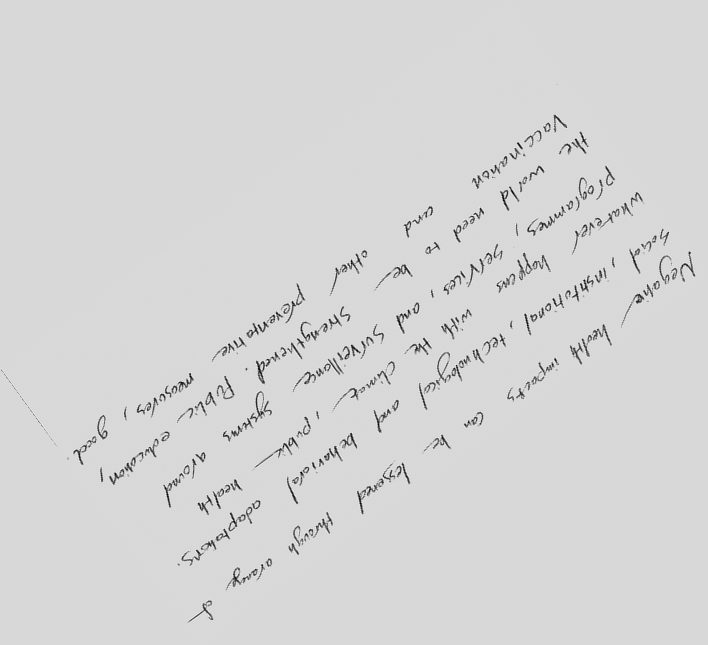 Negative health impacts can be lessened through arange of
social, institutional, technological and behavioral adaptations.
whatever happens with the climat, public health
programmes, services, and surveillance systems around
the world need to be strengthened. Public education,
vaccination and other preventative measures, good